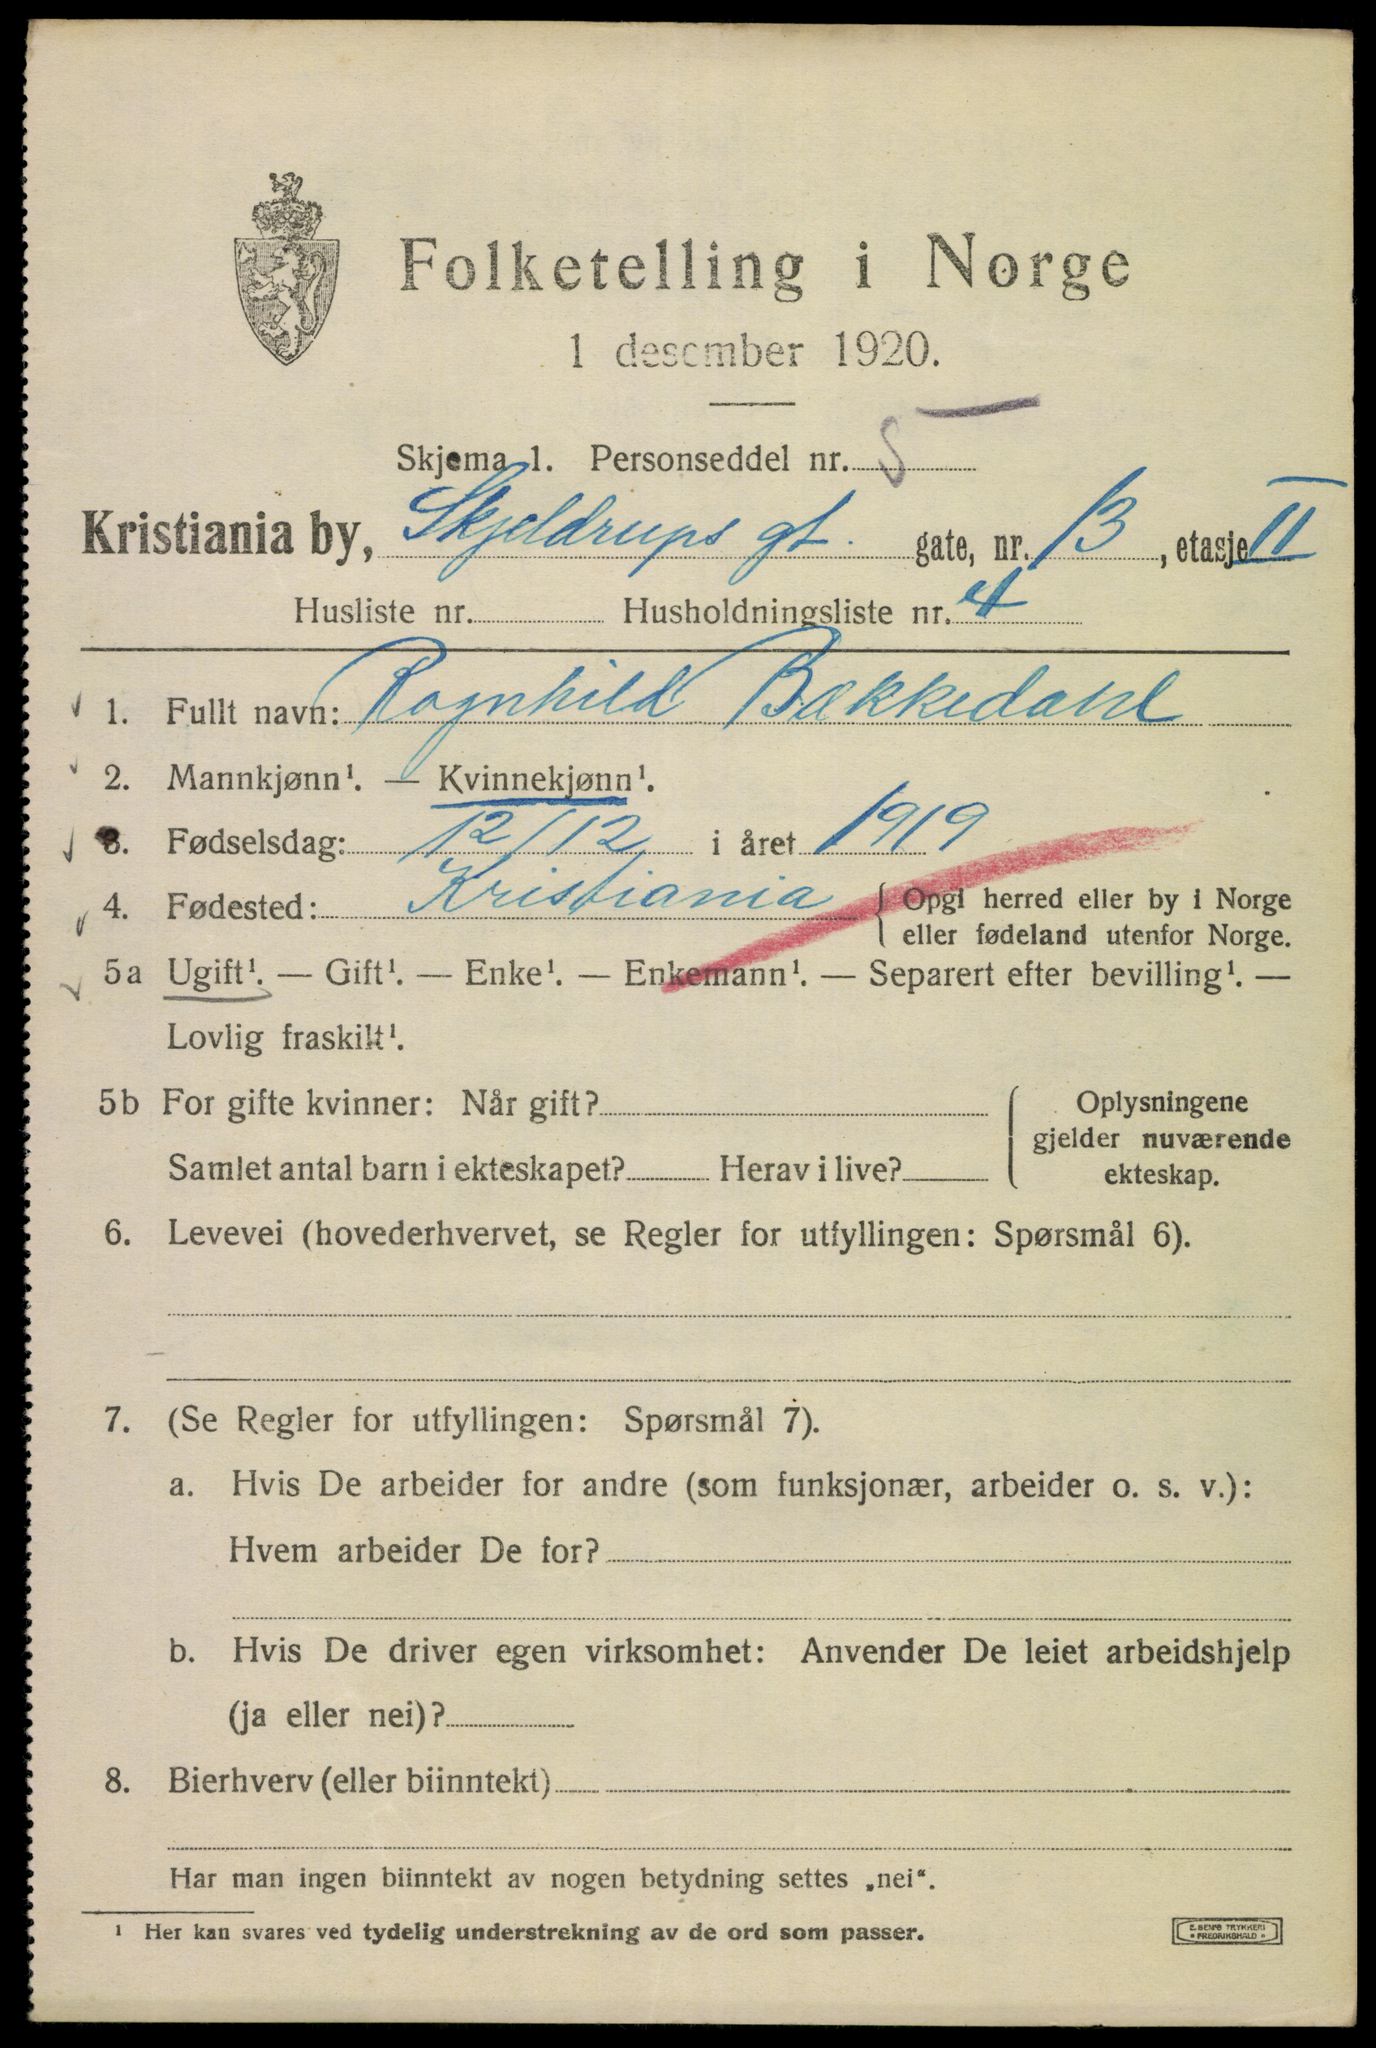 Folketelling i Norge
1 desember 1920.
Skjema 1. Personseddel nr. 5
Kristiania by, Skjeldrups gt. gate, nr. 13, etasje II
Husliste nr. Husholdningsliste nr. 4
1. Fullt navn: Ragnhild Bækkedahl
2. Mannkjønn¹. — Kvinnekjønn¹.
3. Fødselsdag: 12/12 i året 1919
4. Fødested: Kristiania { Opgi herred eller by i Norge
eller fødeland utenfor Norge.
5a Ugift¹. — Gift¹. — Enke¹. — Enkemann¹. — Separert efter bevilling¹. —
Lovlig fraskilt¹.
5b For gifte kvinner: Når gift? Oplysningene
gjelder nuværende
Samlet antal barn i ekteskapet? Herav i live? ekteskap.
6. Levevei (hovederhvervet, se Regler for utfyllingen: Spørsmål 6).
7. (Se Regler for utfyllingen: Spørsmål 7).
a. Hvis De arbeider for andre (som funksjonær, arbeider o. s. v.):
Hvem arbeider De for?
b. Hvis De driver egen virksomhet: Anvender De leiet arbeidshjelp
(ja eller nei)?
8. Bierhverv (eller biinntekt)
Har man ingen biinntekt av nogen betydning settes „nei“.
¹ Her kan svares ved tydelig understrekning av de ord som passer.
E. SEM'S TRYKKERI
FREDRIKSHALD